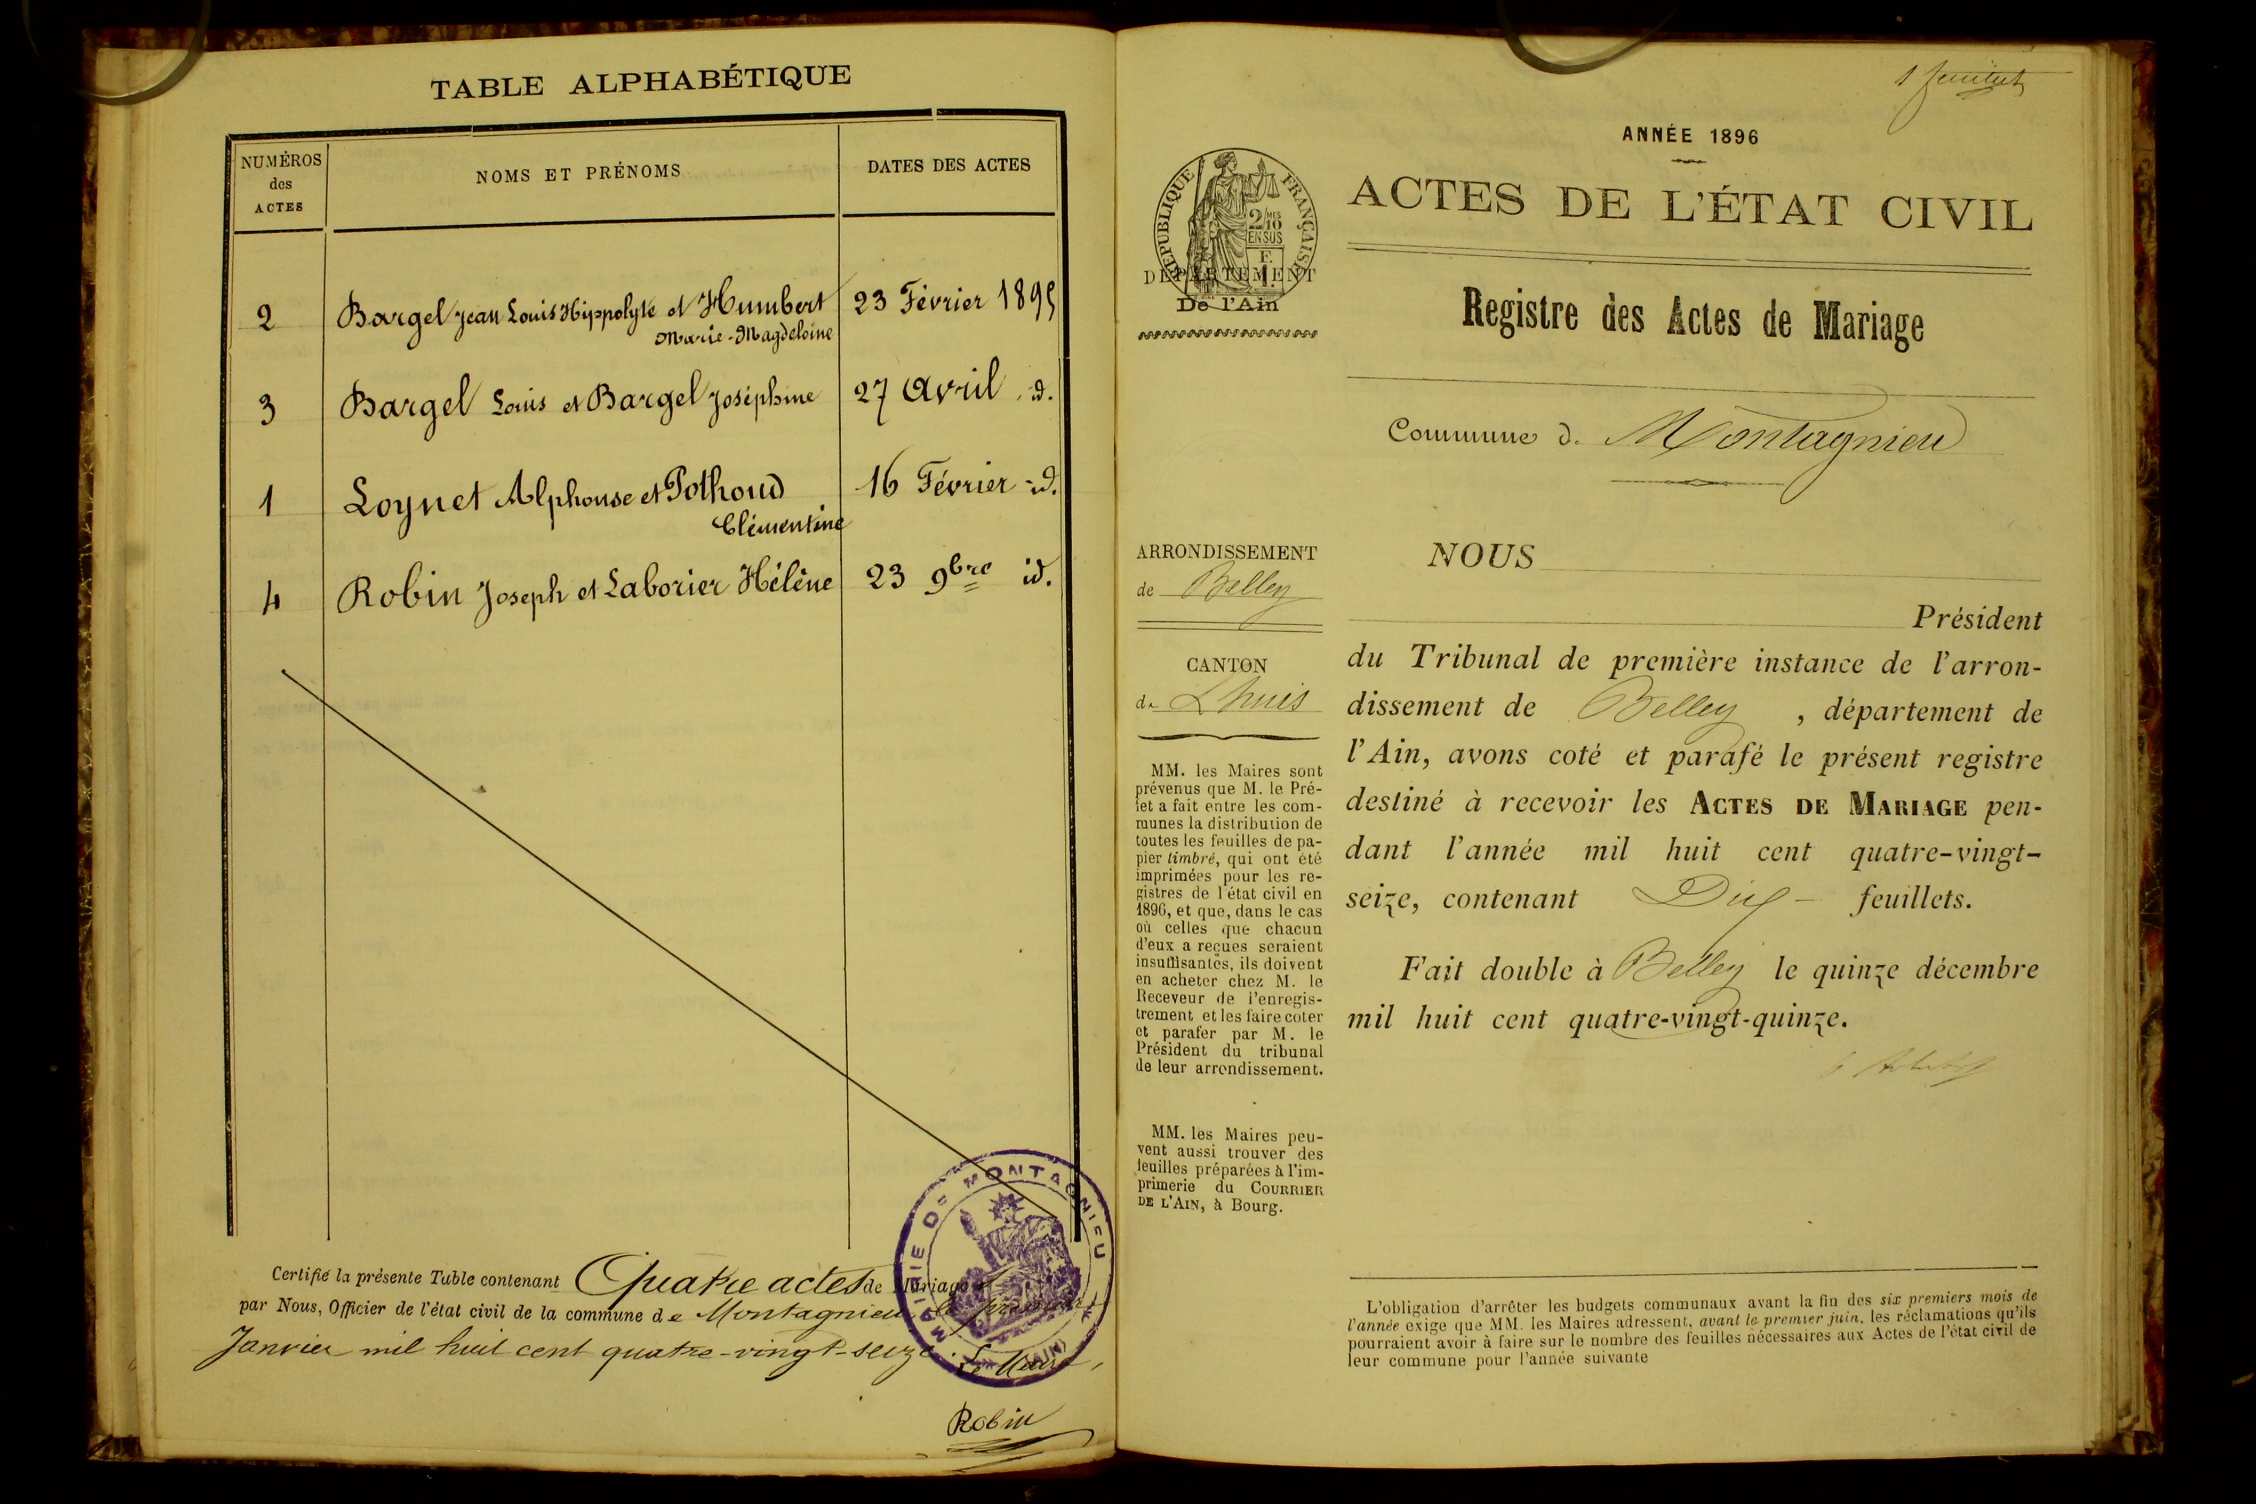 TABLE ALPHABÉTIQUE
NUMÉROS
des
ACTES
NOMS ET PRÉNOMS
DATES DES ACTES
2 Bargel Jean Louis Hippolyte et Humbert 23 Février 1895
Marie-Magdeleine
3 Bargel Louis et Bargel Joséphine 27 Avril id.
1 Loynet Alphonse et Pothoud 16 Février id.
Clémentine
4 Robin Joseph et Laborier Hélène 23 9bre id.
Certifié la présente Table contenant Quatre actes de Mariage
par Nous, Officier de l'état civil de la commune de Montagnieu, le premier
Janvier mil huit cent quatre-vingt-seize. Le Maire,
MAIRIE DE MONTAGNIEU
(AIN)
Robin
1 feuillet
ANNÉE 1896
ACTES DE L'ÉTAT CIVIL
RÉPUBLIQUE FRANÇAISE
2/10 MES
EN SUS
DÉPARTEMENT
De l'Ain
Registre des Actes de Mariage
Commune d. Montagnieu
ARRONDISSEMENT
de Belley
CANTON
de Lhuis
MM. les Maires sont
prévenus que M. le Pré-
fet a fait entre les com-
munes la distribution de
toutes les feuilles de pa-
pier timbré, qui ont été
imprimées pour les re-
gistres de l'état civil en
1896, et que, dans le cas
où celles que chacun
d'eux a reçues seraient
insuffisantes, ils doivent
en acheter chez M. le
Receveur de l'enregis-
trement et les faire coter
et parafer par M. le
Président du tribunal
de leur arrondissement.
MM. les Maires peu-
vent aussi trouver des
feuilles préparées à l'im-
primerie du COURRIER
DE L'AIN, à Bourg.
NOUS
Président
du Tribunal de première instance de l'arron-
dissement de Belley, département de
l'Ain, avons coté et parafé le présent registre
destiné à recevoir les ACTES DE MARIAGE pen-
dant l'année mil huit cent quatre-vingt-
seize, contenant Dix feuillets.
Fait double à Belley le quinze décembre
mil huit cent quatre-vingt-quinze.
L'obligation d'arrêter les budgets communaux avant la fin des six premiers mois de
l'année exige que MM. les Maires adressent, avant le premier juin, les réclamations qu'ils
pourraient avoir à faire sur le nombre des feuilles nécessaires aux Actes de l'état civil de
leur commune pour l'année suivante